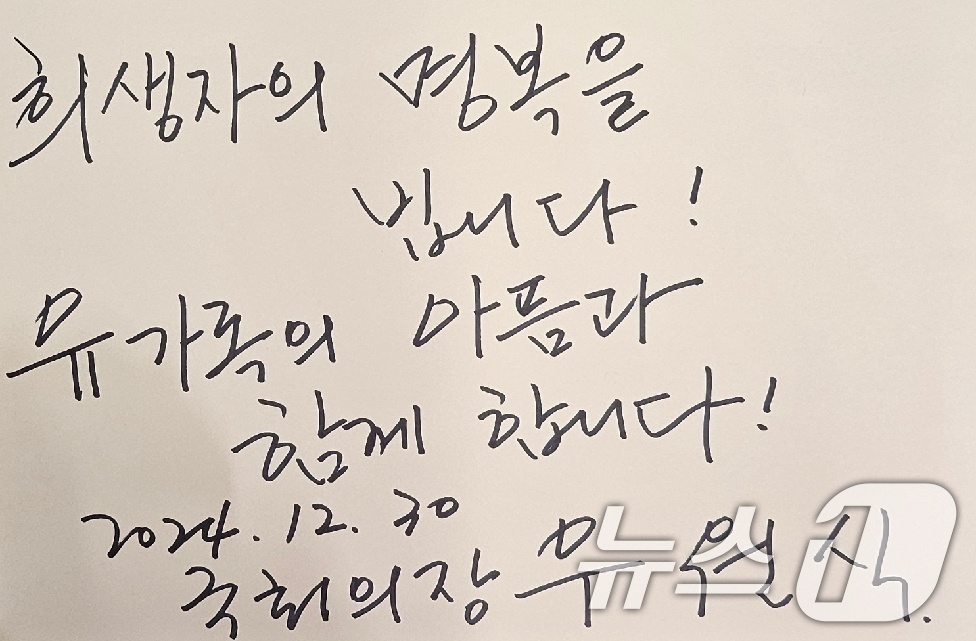 희생자의 명복을
빕니다!
유가족의 아픔과
함께 합니다!
2024.12.30
국회의장 우원식.
뉴스1